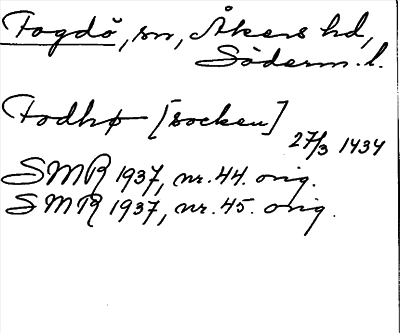 Fogdö, sn, Åkers hd,
Söderm. l.
Fodhø [socken]
27/3 1434
SMR 1937, nr. 44. orig.
SMR 1937, nr. 45. orig.